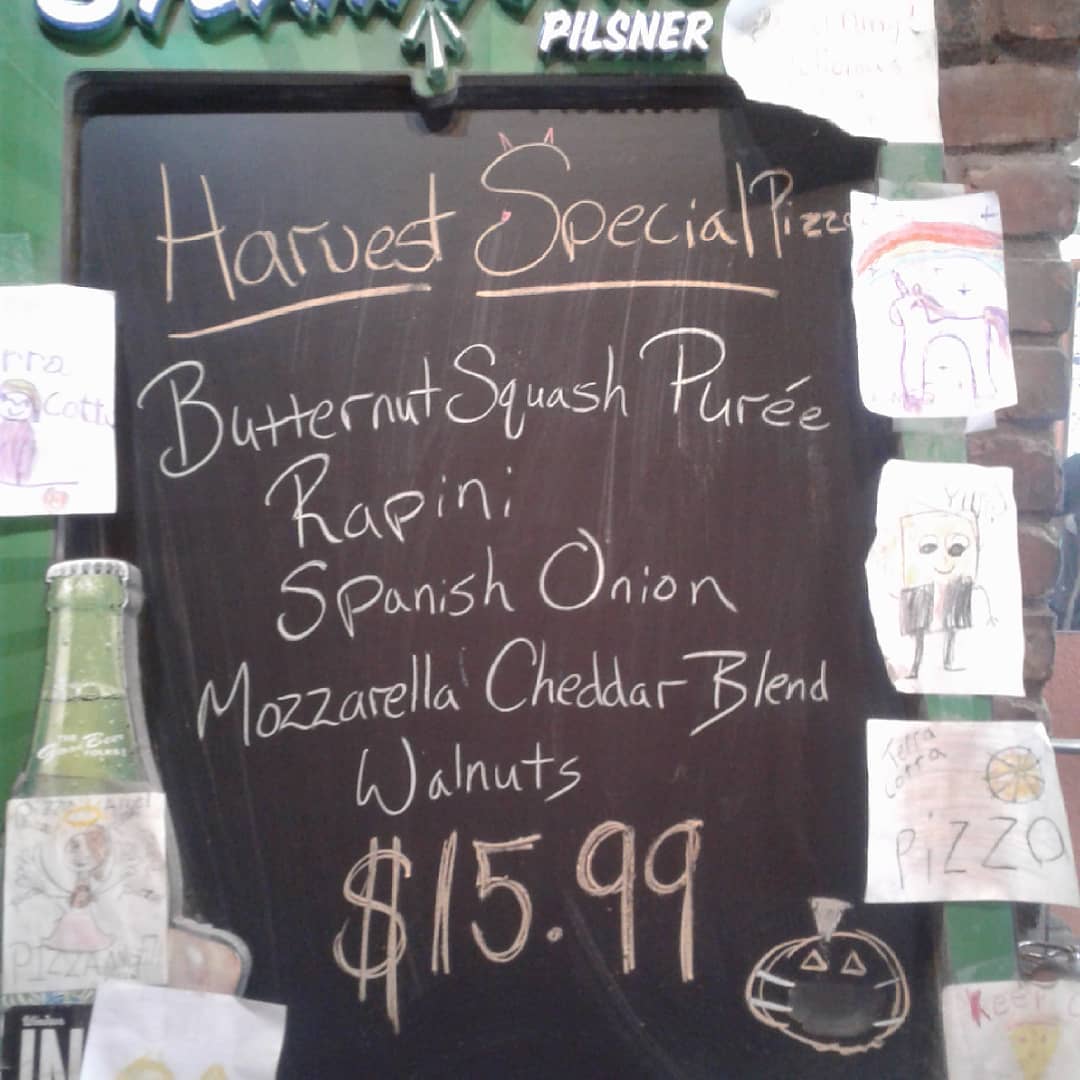 PILSNER
Harvest Special Pizza
Butternut Squash Purée
Rapini
Spanish Onion
Mozzarella Cheddar Blend
Walnuts
$15.99
rra
Cotta
Yup!
Terra
Cotta
PiZZO
THE
Good Beer
FOLKS
PIZZA
IN
Keep